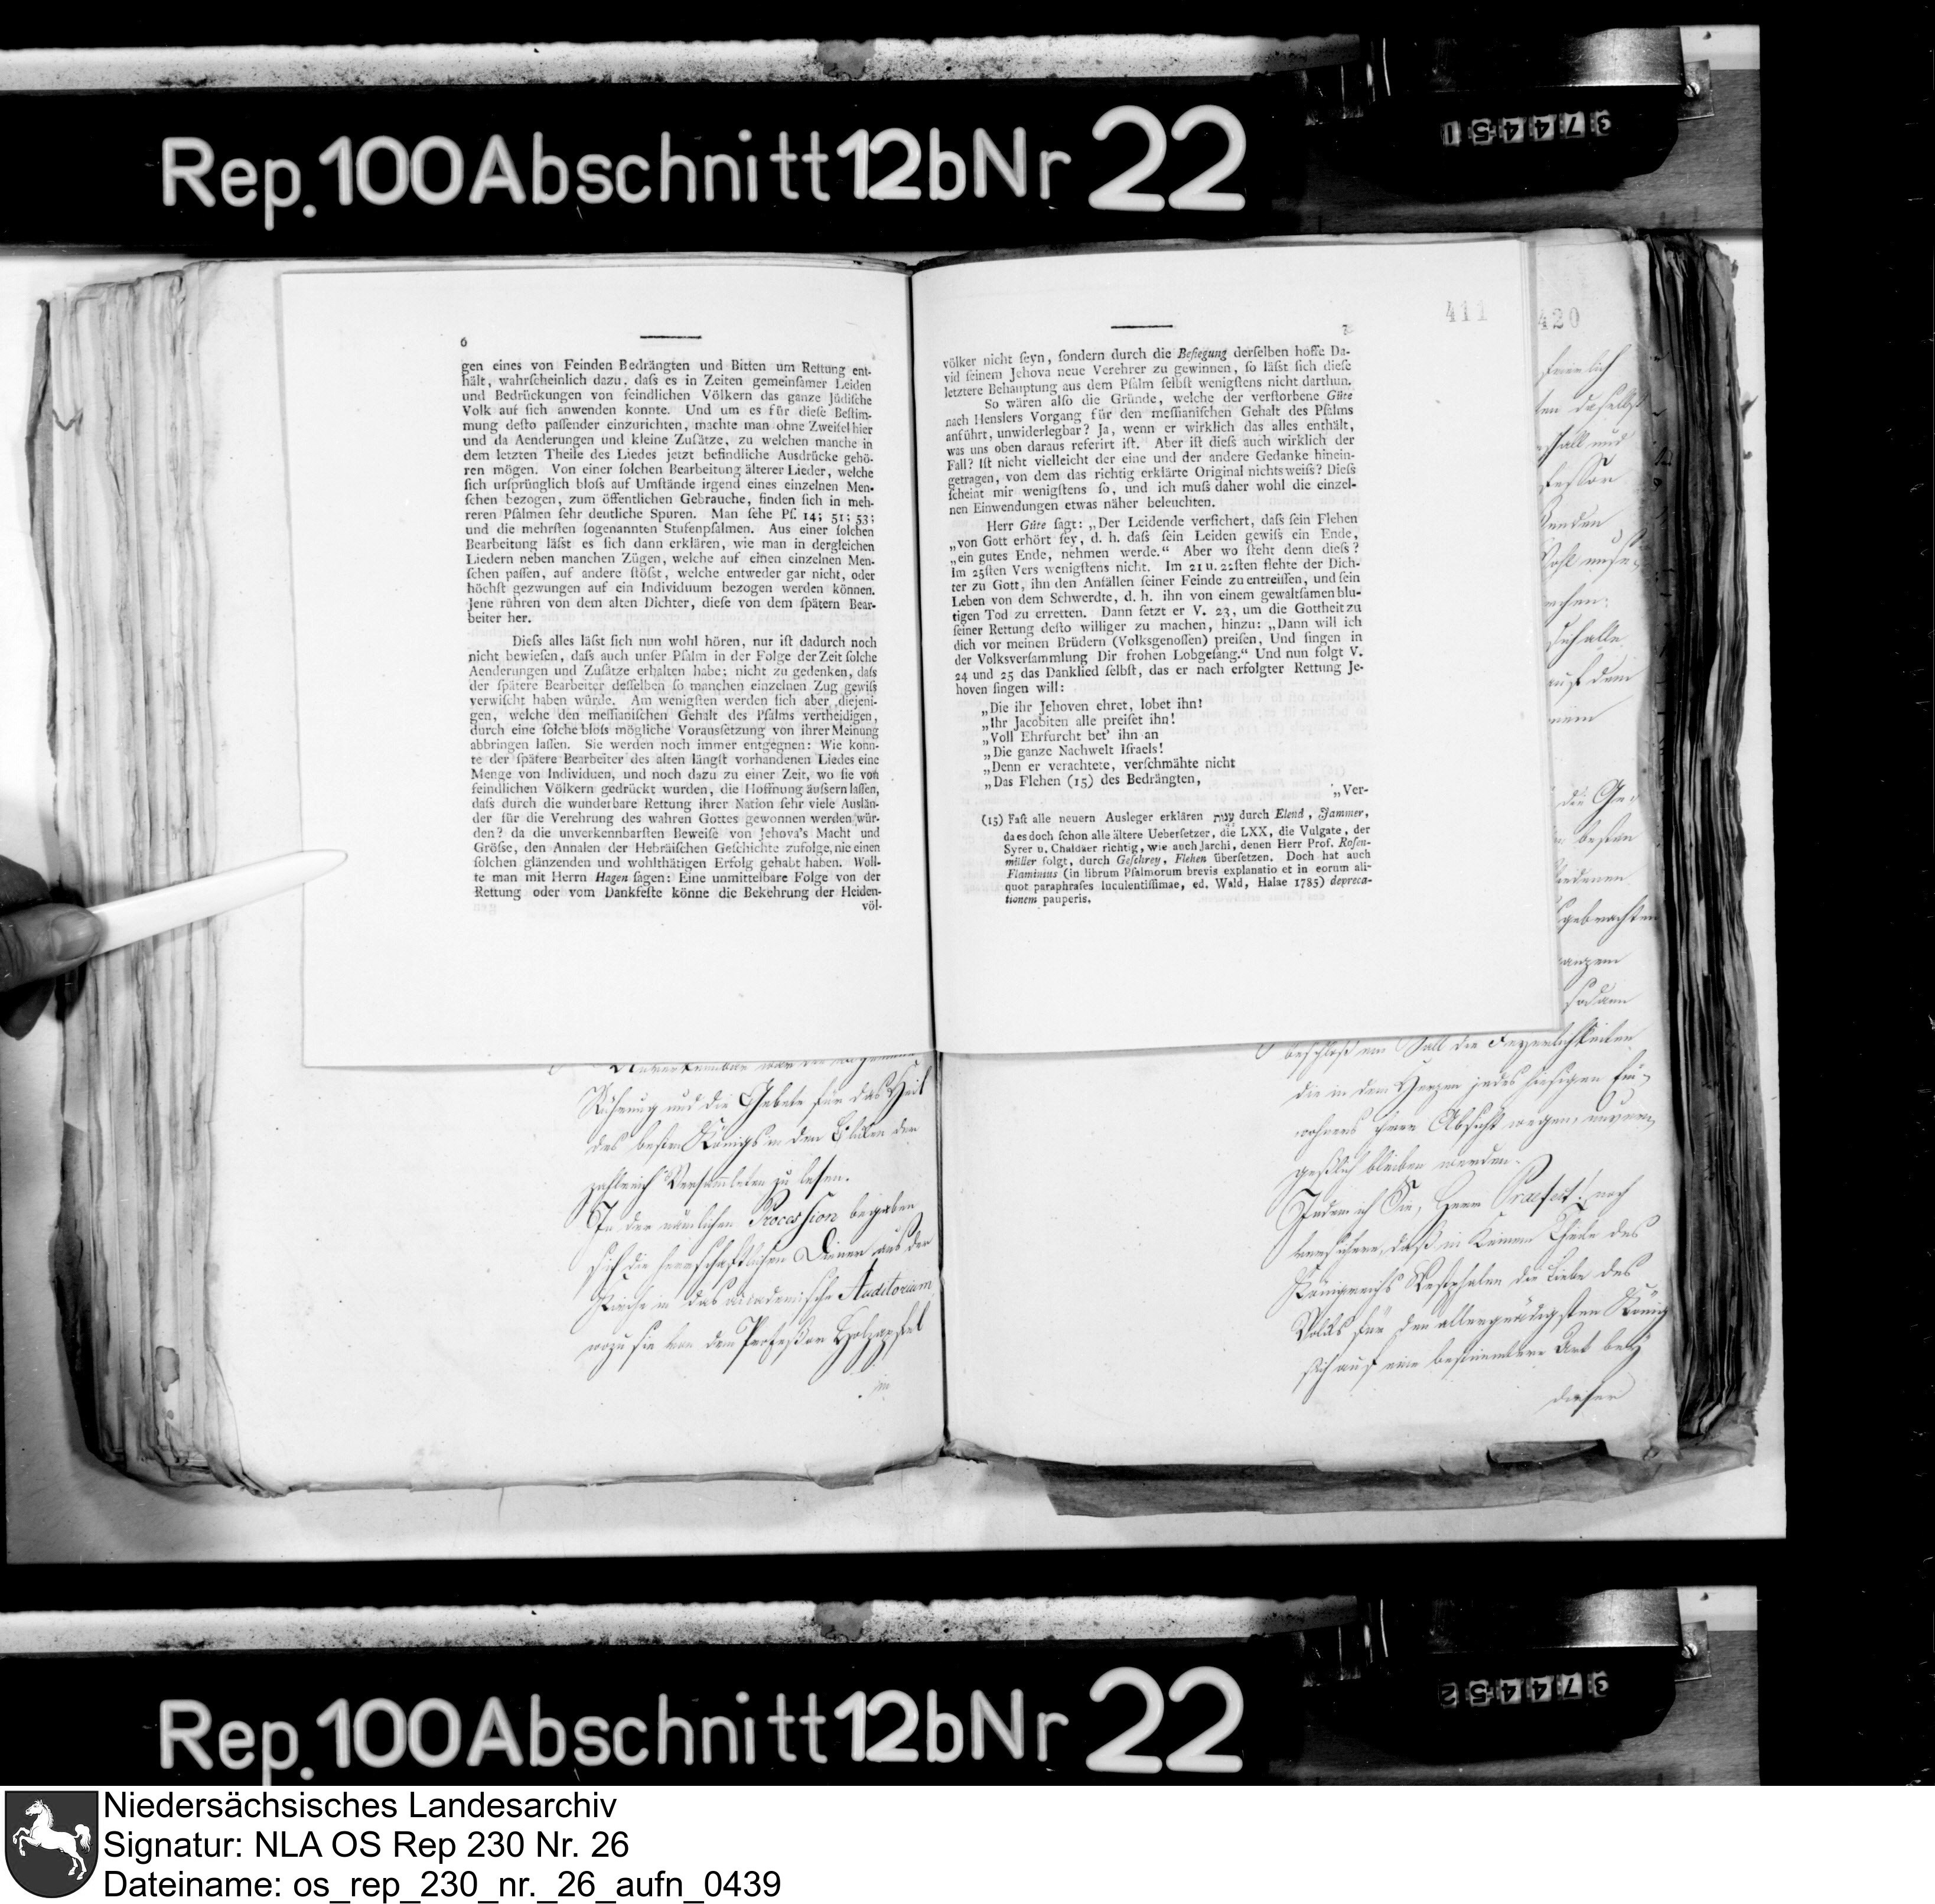 Rep. 100 Abschnitt 12b Nr 22
374451
6
gen eines von Feinden Bedrängten und Bitten um Rettung ent-
hält, wahrſcheinlich dazu, daſs es in Zeiten gemeinſamer Leiden
und Bedrückungen von feindlichen Völkern das ganze Jüdiſche
Volk auf ſich anwenden konnte. Und um es für dieſe Beſtim-
mung deſto paſſender einzurichten, machte man ohne Zweifel hier
und da Aenderungen und kleine Zuſätze, zu welchen manche in
dem letzten Theile des Liedes jetzt befindliche Ausdrücke gehö-
ren mögen. Von einer ſolchen Bearbeitung älterer Lieder, welche
ſich urſprünglich bloſs auf Umſtände irgend eines einzelnen Men-
ſchen bezogen, zum öffentlichen Gebrauche, finden ſich in meh-
reren Pſalmen ſehr deutliche Spuren. Man ſehe Pſ. 14; 51; 53;
und die mehrſten ſogenannten Stufenpſalmen. Aus einer ſolchen
Bearbeitung läſst es ſich dann erklären, wie man in dergleichen
Liedern neben manchen Zügen, welche auf einen einzelnen Men-
ſchen paſſen, auf andere ſtöſst, welche entweder gar nicht, oder
höchſt gezwungen auf ein Individuum bezogen werden können.
Jene rühren von dem alten Dichter, dieſe von dem ſpätern Bear-
beiter her.
Dieſs alles läſst ſich nun wohl hören, nur iſt dadurch noch
nicht bewieſen, daſs auch unſer Pſalm in der Folge der Zeit ſolche
Aenderungen und Zuſätze erhalten habe; nicht zu gedenken, daſs
der ſpätere Bearbeiter deſſelben ſo manchen einzelnen Zug gewiſs
verwiſcht haben würde. Am wenigſten werden ſich aber diejeni-
gen, welche den meſſianiſchen Gehalt des Pſalms vertheidigen,
durch eine ſolche bloſs mögliche Vorausſetzung von ihrer Meinung
abbringen laſſen. Sie werden noch immer entgegnen: Wie konn-
te der ſpätere Bearbeiter des alten längſt vorhandenen Liedes eine
Menge von Individuen, und noch dazu zu einer Zeit, wo ſie von
feindlichen Völkern gedrückt wurden, die Hoffnung äuſsern laſſen,
daſs durch die wunderbare Rettung ihrer Nation ſehr viele Auslän-
der für die Verehrung des wahren Gottes gewonnen werden wür-
den? da die unverkennbarſten Beweiſe von Jehova's Macht und
Gröſse, den Annalen der Hebräiſchen Geſchichte zufolge, nie einen
ſolchen glänzenden und wohlthätigen Erfolg gehabt haben. Woll-
te man mit Herrn Hagen ſagen: Eine unmittelbare Folge von der
Rettung oder vom Dankfeſte könne die Bekehrung der Heiden-
völ-
Rührung und die Gebete für das Heil
des besten Königs in den Blicken der
zahlreich Versammleten zu lesen.
In der nämlichen Procession begaben
sich die herrschaftlichen Diener aus der
Kirche in das academische Auditorium
wozu sie von dem Professor Holzapfel
in
7
411
420
völker nicht ſeyn, ſondern durch die Beſiegung derſelben hoffe Da-
vid ſeinem Jehova neue Verehrer zu gewinnen, ſo läſst ſich dieſe
letztere Behauptung aus dem Pſalm ſelbſt wenigſtens nicht darthun.
So wären alſo die Gründe, welche der verſtorbene Güte
nach Henslers Vorgang für den meſſianiſchen Gehalt des Pſalms
anführt, unwiderlegbar? Ja, wenn er wirklich das alles enthält,
was uns oben daraus referirt iſt. Aber iſt dieſs auch wirklich der
Fall? Iſt nicht vielleicht der eine und der andere Gedanke hinein-
getragen, von dem das richtig erklärte Original nichts weiſs? Dieſs
ſcheint mir wenigſtens ſo, und ich muſs daher wohl die einzel-
nen Einwendungen etwas näher beleuchten.
Herr Güte ſagt: „Der Leidende verſichert, daſs ſein Flehen
„von Gott erhört ſey, d. h. daſs ſein Leiden gewiſs ein Ende,
„ein gutes Ende, nehmen werde.“ Aber wo ſteht denn dieſs?
Im 25ſten Vers wenigſtens nicht. Im 21 u. 22ſten flehte der Dich-
ter zu Gott, ihn den Anfällen ſeiner Feinde zu entreiſſen, und ſein
Leben von dem Schwerdte, d. h. ihn von einem gewaltſamen blu-
tigen Tod zu erretten. Dann ſetzt er V. 23, um die Gottheit zu
ſeiner Rettung deſto williger zu machen, hinzu: „Dann will ich
dich vor meinen Brüdern (Volksgenoſſen) preiſen, Und ſingen in
der Volksverſammlung Dir frohen Lobgeſang.“ Und nun folgt V.
24 und 25 das Danklied ſelbſt, das er nach erfolgter Rettung Je-
hoven ſingen will:
„Die ihr Jehoven ehret, lobet ihn!
„Ihr Jacobiten alle preiſet ihn!
„Voll Ehrfurcht bet' ihn an
„Die ganze Nachwelt Iſraels!
„Denn er verachtete, verſchmähte nicht
„Das Flehen (15) des Bedrängten,
„Ver-
(15) Faſt alle neuern Ausleger erklären durch Elend, Jammer,
da es doch ſchon alle ältere Ueberſetzer, die LXX, die Vulgate, der
Syrer u. Chaldäer richtig, wie auch Jarchi, denen Herr Prof. Roſen-
müller folgt, durch Geſchrey, Flehen überſetzen. Doch hat auch
Flaminius (in librum Pſalmorum brevis explanatio et in eorum ali-
quot paraphraſes luculentiſſimae, ed. Wald, Halae 1785) depreca-
tionem pauperis.
beschloß ein Ball die Feyerlichkeiten
die in dem Herzen jedes hiesigen Ein-
wohners ihrer Absicht wegen, unver-
geßlich bleiben werden.
Indem ich Sie, Herr Praefect! noch
versichere, daß in keinem Theile des
Königreichs Westphalen die Liebe des
Volks für den allergnädigsten König
sich auf eine bestimmtere Art bey
dieser
Rep. 100 Abschnitt 12b Nr 22
374452
Niedersächsisches Landesarchiv
Signatur: NLA OS Rep 230 Nr. 26
Dateiname: os_rep_230_nr._26_aufn_0439